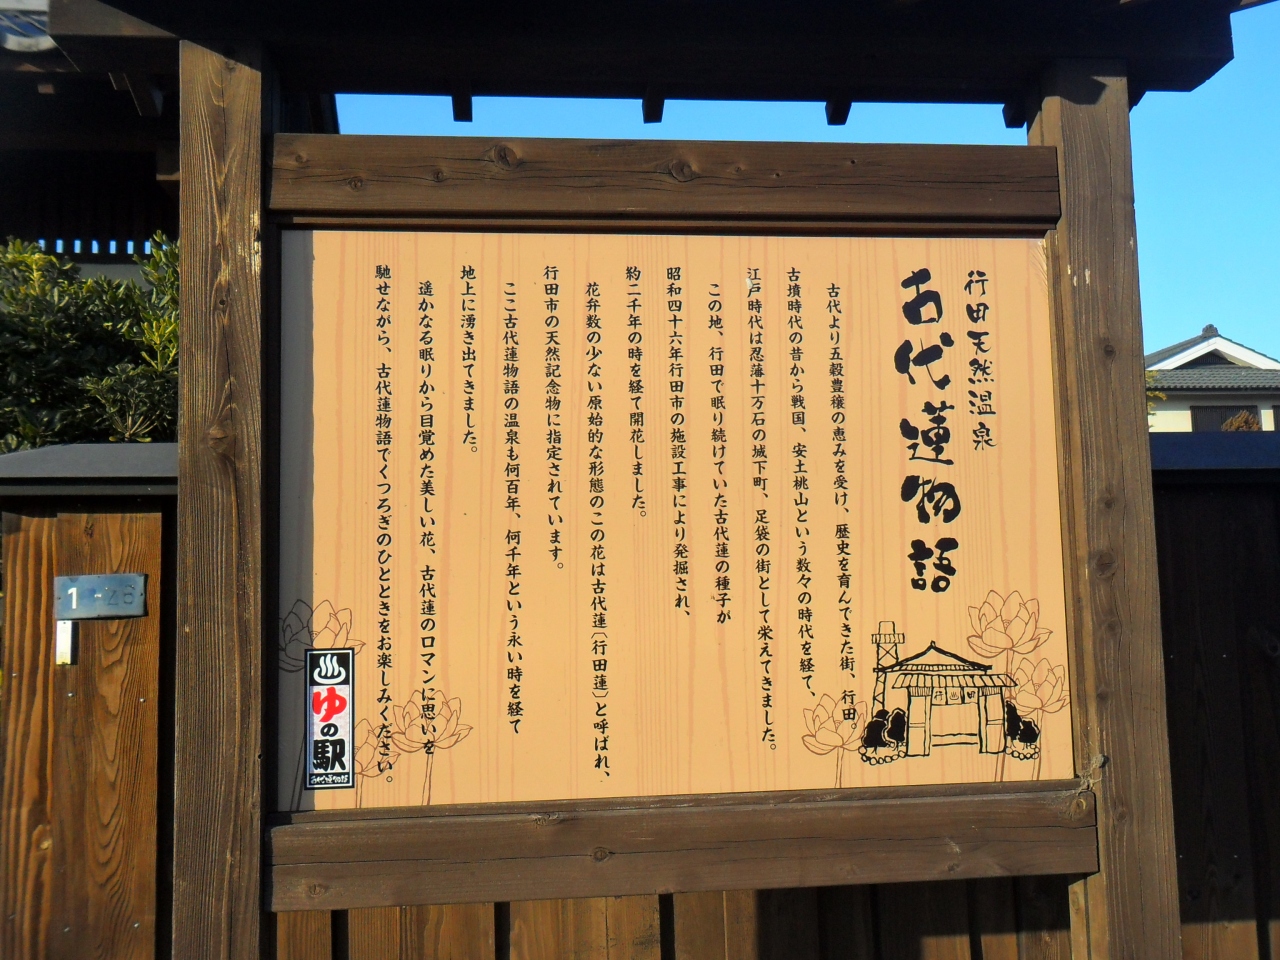 行田天然温泉
古代蓮物語
古代より五穀豊穣の恵みを受け、歴史を育んできた街、行田。
古墳時代の昔から戦国、安土桃山という数々の時代を経て、
江戸時代は忍藩十万石の城下町、足袋の街として栄えてきました。
この地、行田で眠り続けていた古代蓮の種子が
昭和四十六年行田市の施設工事により発掘され、
約二千年の時を経て開花しました。
花弁数の少ない原始的な形態のこの花は古代蓮(行田蓮)と呼ばれ、
行田市の天然記念物に指定されています。
ここ古代蓮物語の温泉も何百年、何千年という永い時を経て
地上に湧き出てきました。
遥かなる眠りから目覚めた美しい花、古代蓮のロマンに思いを
馳せながら、古代蓮物語でくつろぎのひとときをお楽しみください。
行田
ゆの駅
1-26